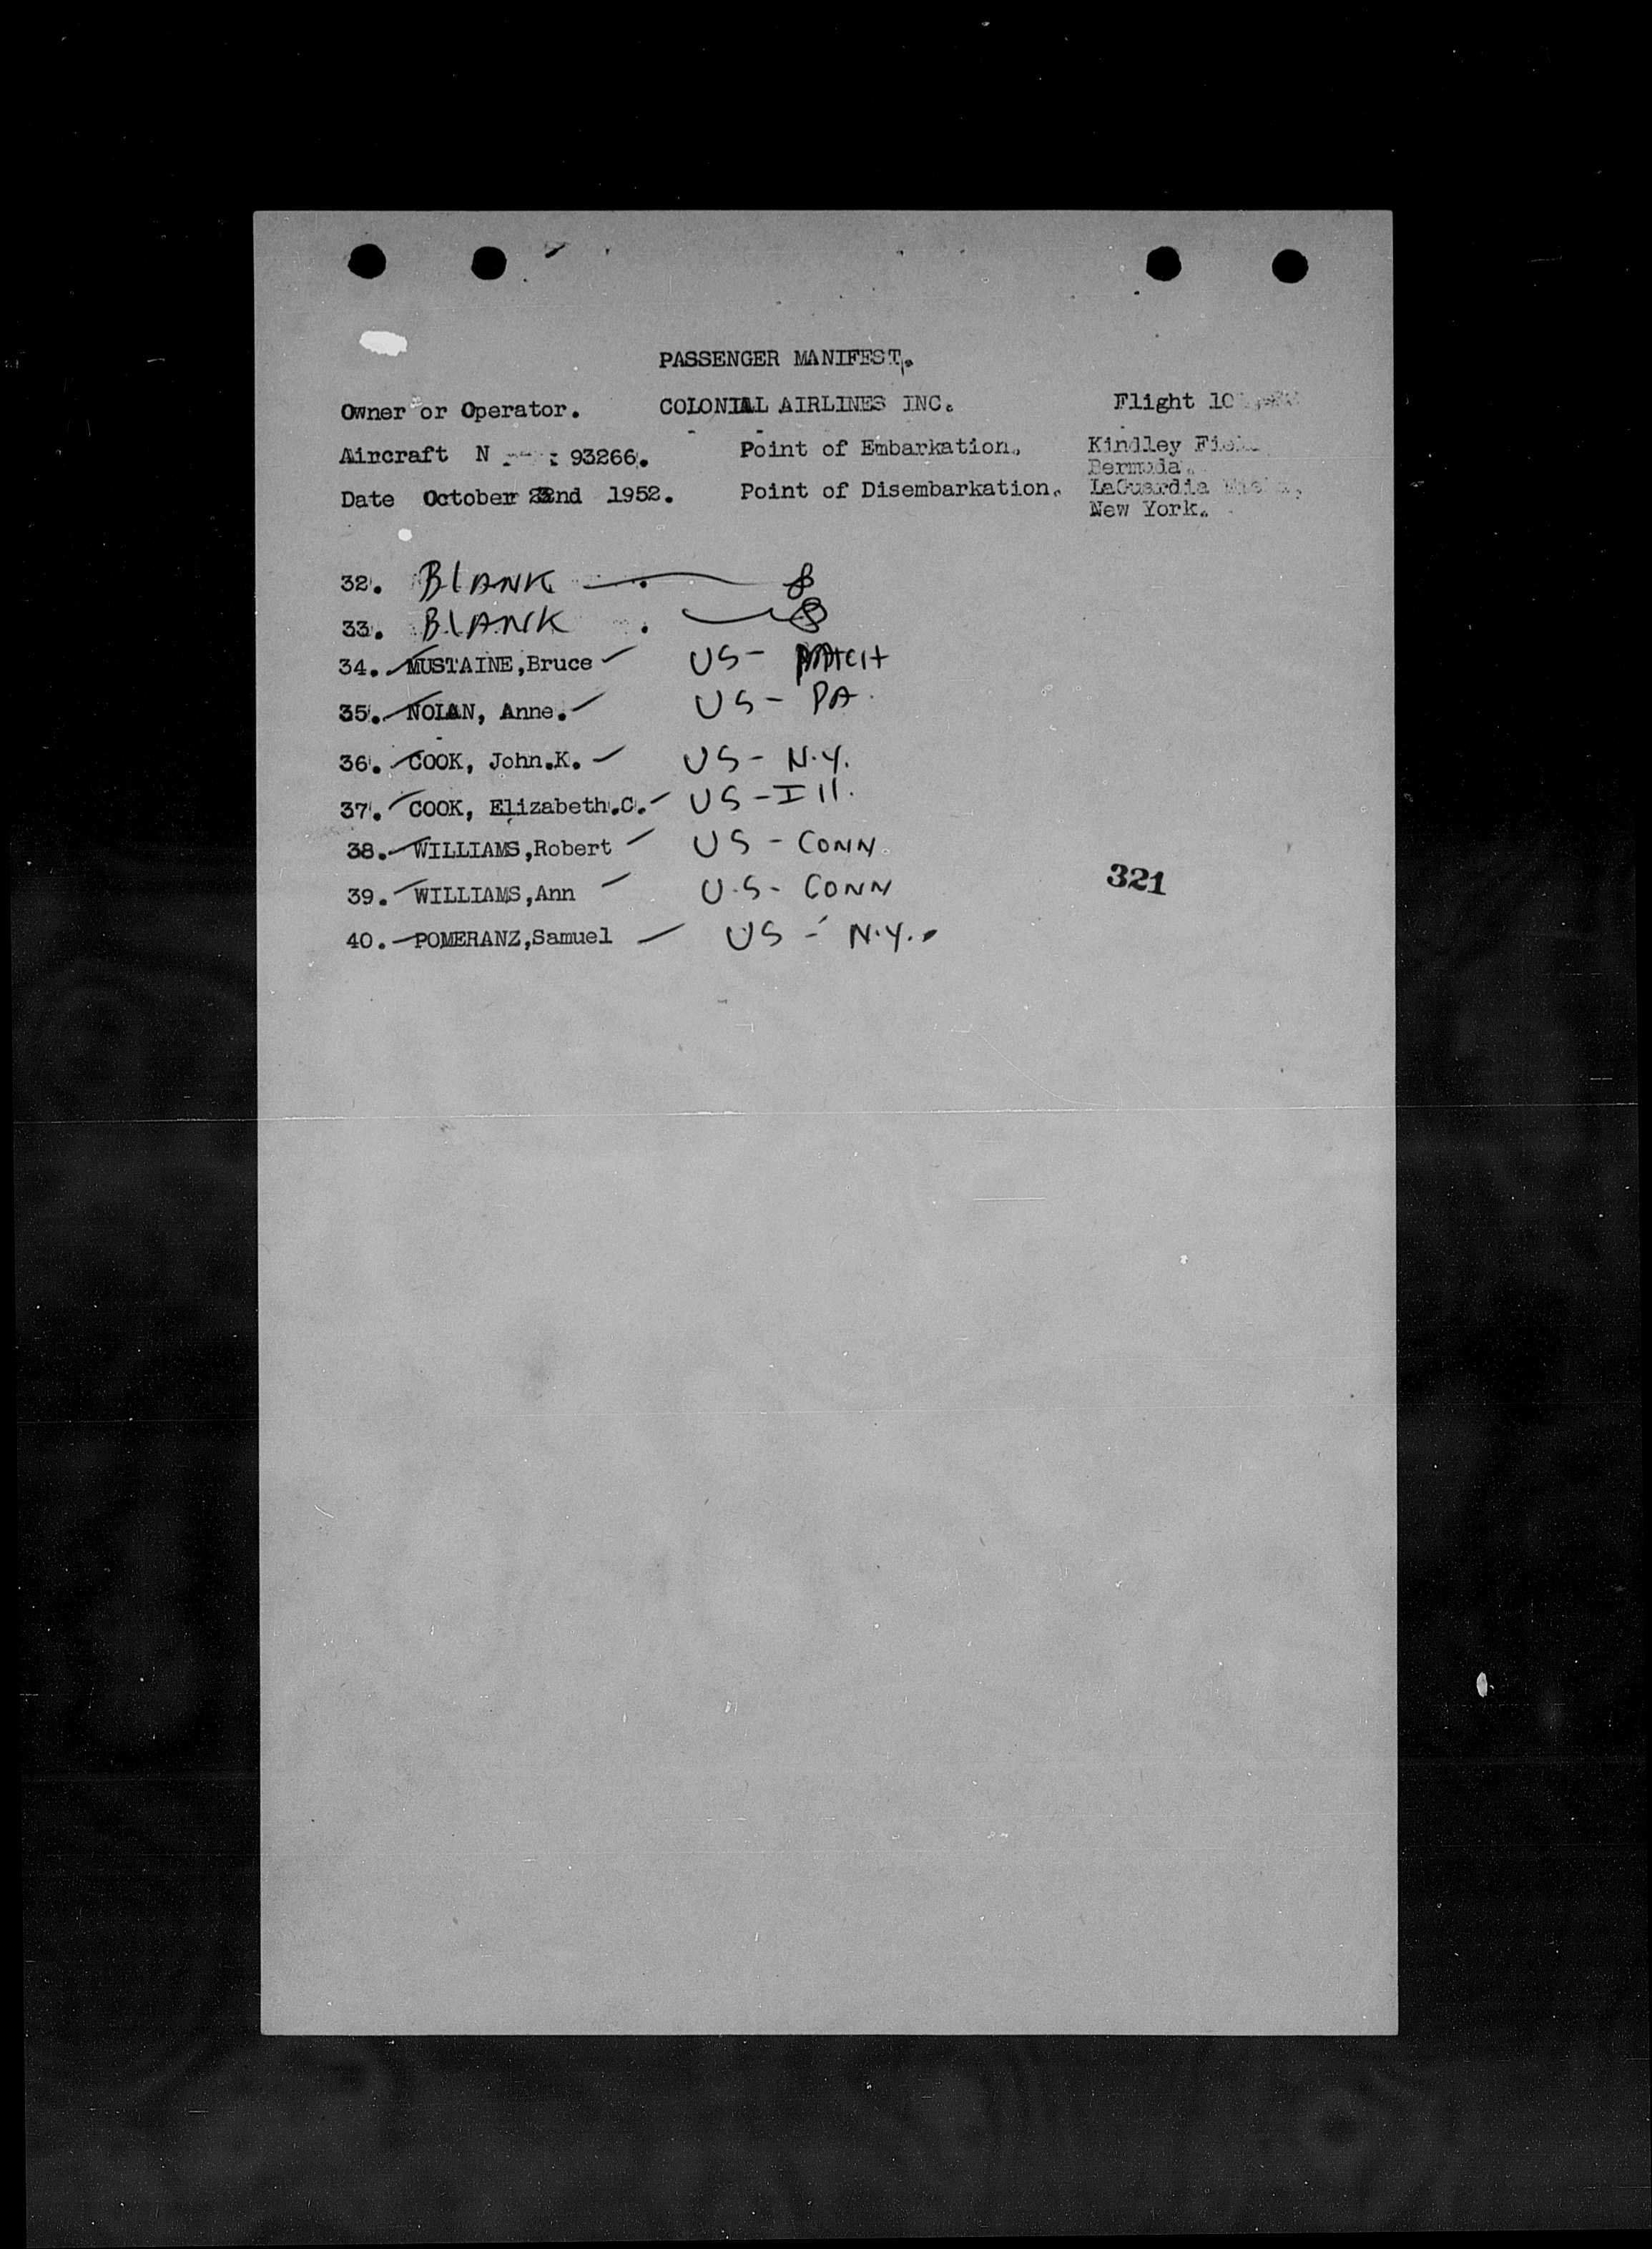 PASSENGER MANIFEST.
Owner or Operator. COLONIAL AIRLINES INC. Flight 10
Aircraft N 93266. Point of Embarkation. Kindley
Bermuda.
Date October 1952. Point of Disembarkation. LaGuardia
New York.
32. BLANK
33. BLANK
34. MUSTAINE,Bruce US -
35. NOLAN, Anne. US - PA.
36. COOK, John.K. US - N.Y.
37. COOK, Elizabeth.C. US - Ill.
38. WILLIAMS,Robert US - CONN.
39. WILLIAMS,Ann U.S - CONN
321
40. POMERANZ,Samuel US - N.Y.